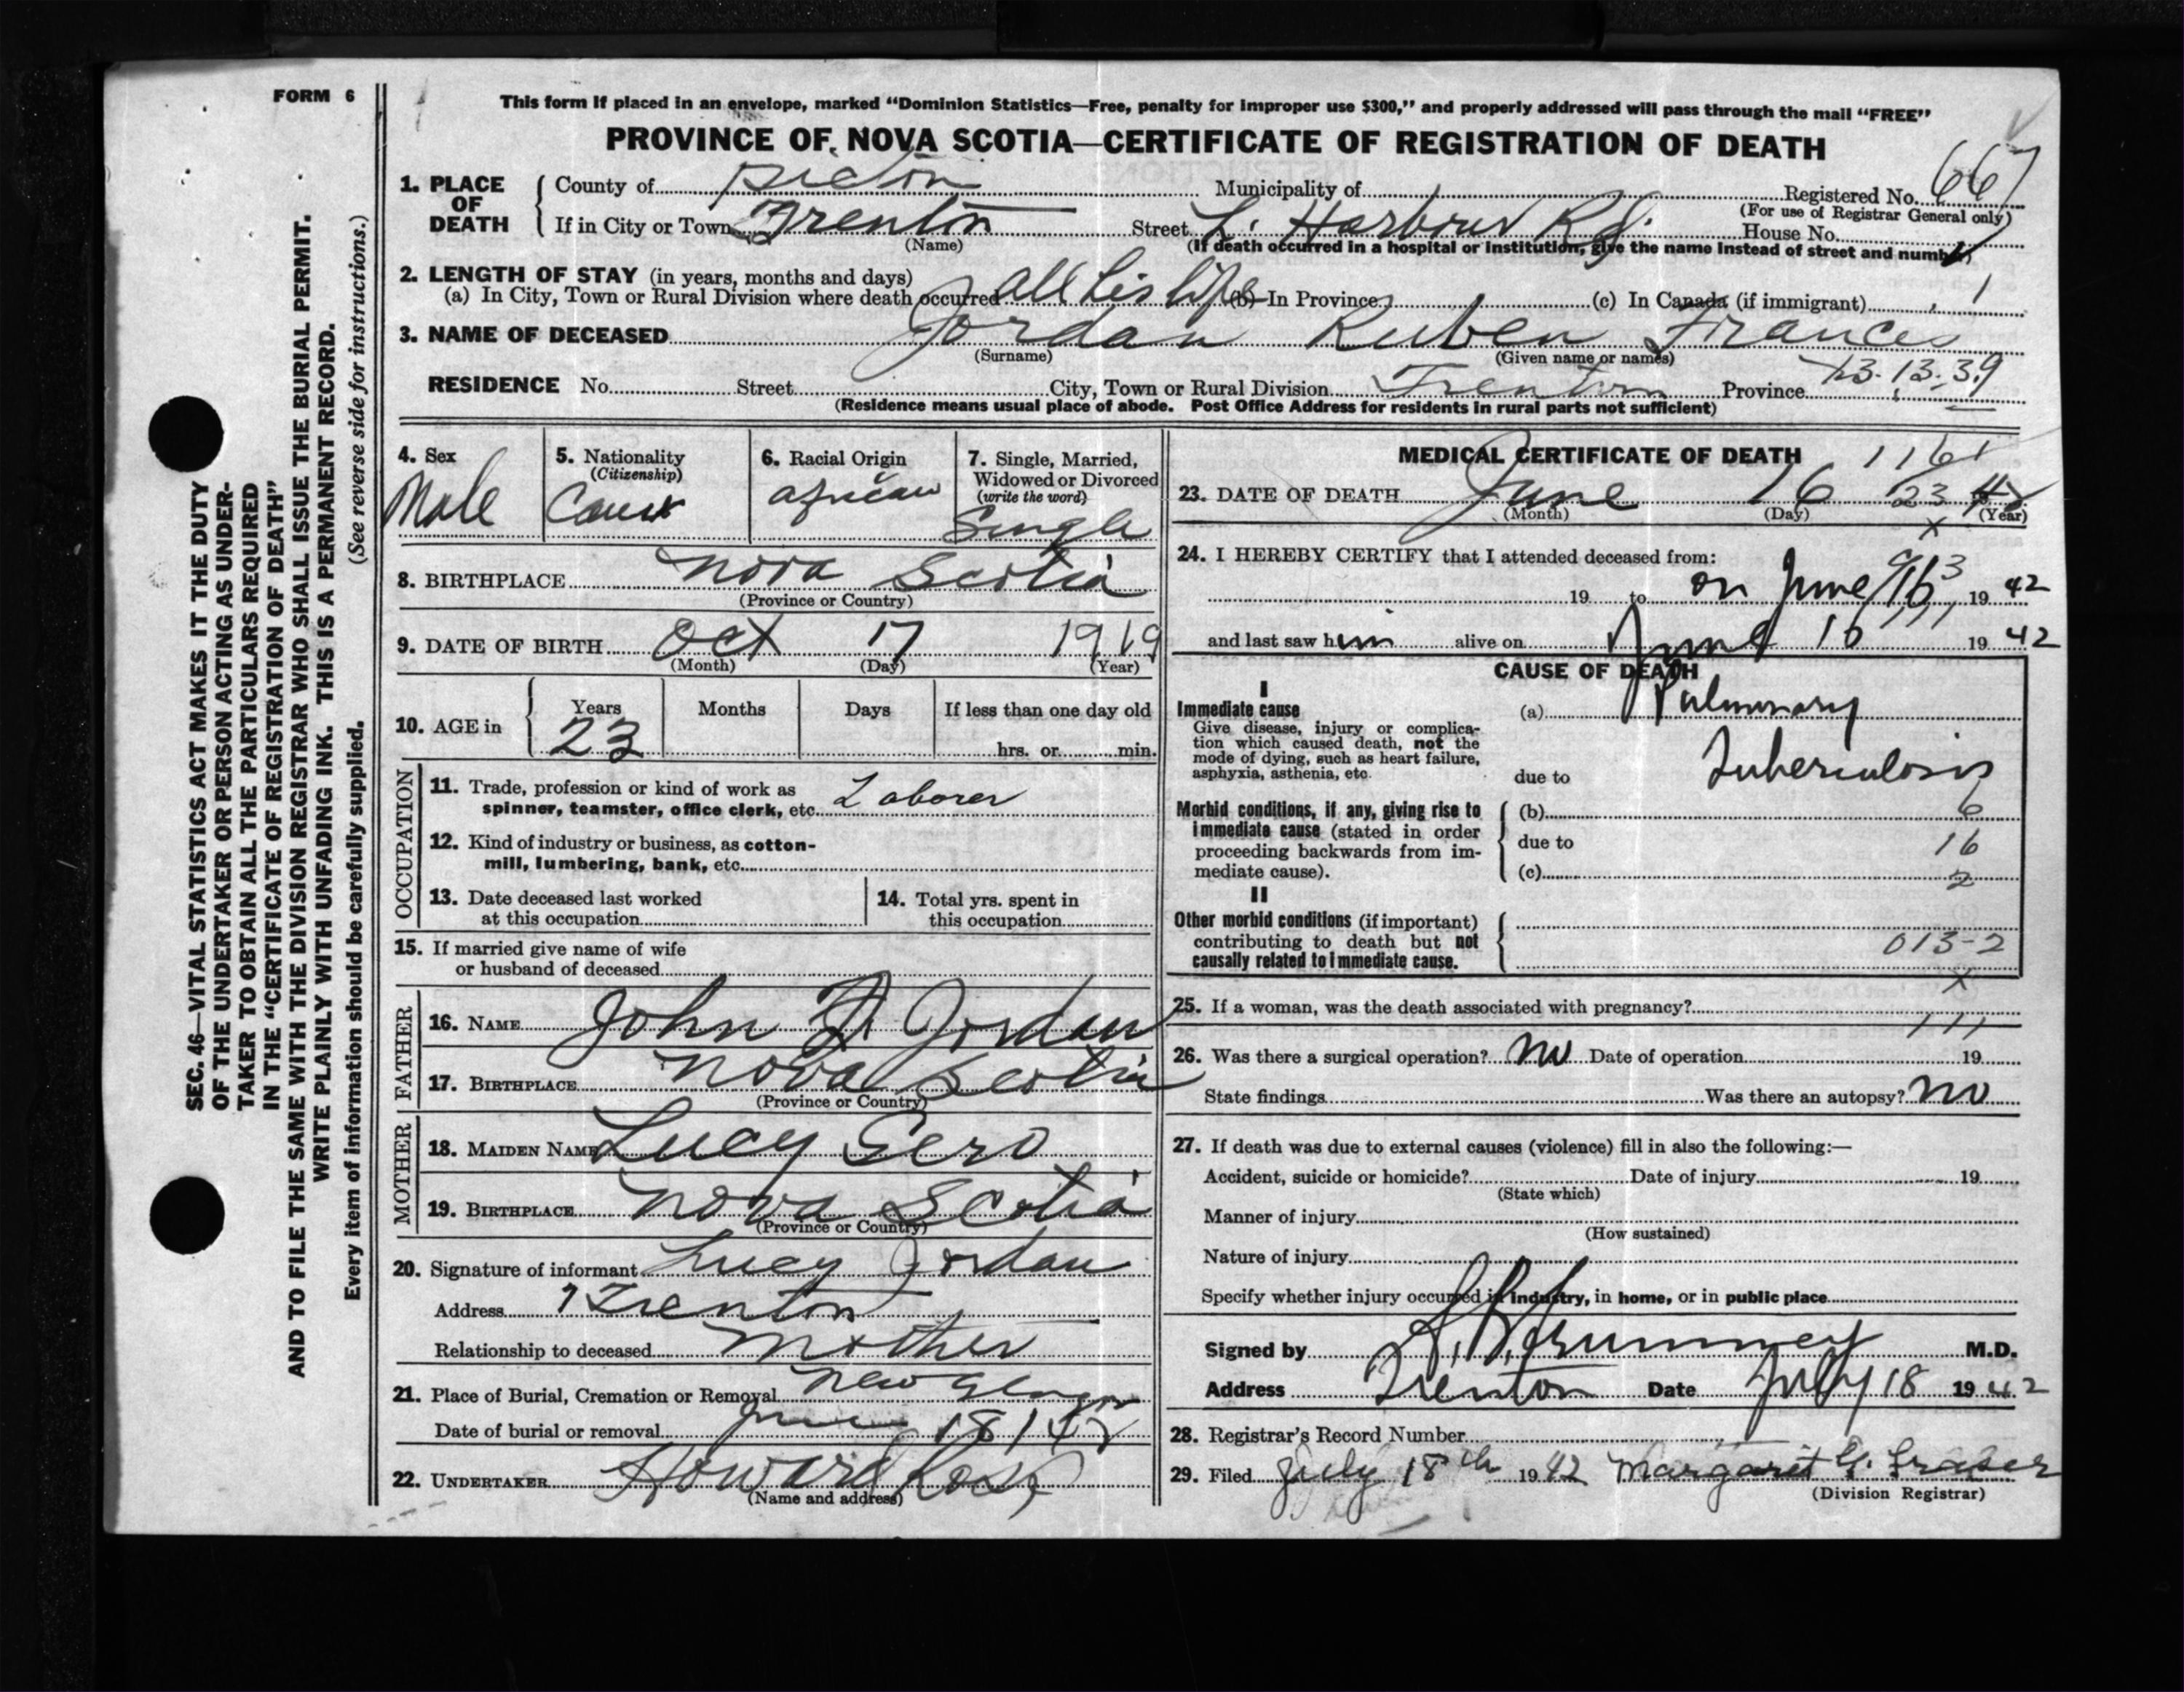 FORM 6
This form if placed in an envelope, marked “Dominion Statistics—Free, penalty for improper use $300,” and properly addressed will pass through the mail “FREE”
PROVINCE OF NOVA SCOTIA—CERTIFICATE OF REGISTRATION OF DEATH
667
1. PLACE OF DEATH County of Pictou Municipality of Registered No.
(For use of Registrar General only)
If in City or Town Trenton Street L. Harbour Rd. House No.
(Name) (If death occurred in a hospital or institution, give the name instead of street and number)
2. LENGTH OF STAY (in years, months and days)
(a) In City, Town or Rural Division where death occurred all his life (b) In Province (c) In Canada (if immigrant) 1
3. NAME OF DECEASED Jordan Ruben Frances
(Surname) (Given name or names)
13.13.39
RESIDENCE No. Street City, Town or Rural Division Trenton Province
(Residence means usual place of abode. Post Office Address for residents in rural parts not sufficient)
4. Sex Male
5. Nationality (Citizenship)
6. Racial Origin african
7. Single, Married, Widowed or Divorced (write the word) Single
8. BIRTHPLACE Nova Scotia
(Province or Country)
9. DATE OF BIRTH Oct 17 1919
(Month) (Day) (Year)
10. AGE in Years 23 Months Days If less than one day old hrs. or min.
OCCUPATION
11. Trade, profession or kind of work as spinner, teamster, office clerk, etc. Laborer
12. Kind of industry or business, as cotton-mill, lumbering, bank, etc.
13. Date deceased last worked at this occupation
14. Total yrs. spent in this occupation
15. If married give name of wife or husband of deceased
FATHER
16. NAME John Jordan
17. BIRTHPLACE Nova Scotia
(Province or Country)
MOTHER
18. MAIDEN NAME Lucy Gero
19. BIRTHPLACE Nova Scotia
(Province or Country)
20. Signature of informant Lucy Jordan
Address Trenton
Relationship to deceased Mother
21. Place of Burial, Cremation or Removal New Glasgow
Date of burial or removal June 18 1942
22. UNDERTAKER Howard Ross
(Name and address)
MEDICAL CERTIFICATE OF DEATH 1161
23. DATE OF DEATH June 16 23 42
(Month) (Day) (Year)
x
24. I HEREBY CERTIFY that I attended deceased from:
19 to on June 16 1942
and last saw him alive on June 16 1942
CAUSE OF DEATH
I
Immediate cause (a) Pulmonary
Give disease, injury or complication which caused death, not the mode of dying, such as heart failure, asphyxia, asthenia, etc.
due to Tuberculosis
Morbid conditions, if any, giving rise to immediate cause (stated in order proceeding backwards from immediate cause).
(b) 6
due to 16
(c) 2
II
Other morbid conditions (if important) contributing to death but not causally related to immediate cause.
013-2
x
25. If a woman, was the death associated with pregnancy?
111
26. Was there a surgical operation? no Date of operation 19
State findings Was there an autopsy? no
27. If death was due to external causes (violence) fill in also the following:—
Accident, suicide or homicide? Date of injury 19
(State which)
Manner of injury
(How sustained)
Nature of injury
Specify whether injury occurred in industry, in home, or in public place
Signed by M.D.
Address Trenton Date July 18 1942
28. Registrar's Record Number
29. Filed July 18th 1942 Margaret G. Fraser
(Division Registrar)
SEC. 46—VITAL STATISTICS ACT MAKES IT THE DUTY
OF THE UNDERTAKER OR PERSON ACTING AS UNDER-
TAKER TO OBTAIN ALL THE PARTICULARS REQUIRED
IN THE “CERTIFICATE OF REGISTRATION OF DEATH”
AND TO FILE THE SAME WITH THE DIVISION REGISTRAR WHO SHALL ISSUE THE BURIAL PERMIT.
WRITE PLAINLY WITH UNFADING INK. THIS IS A PERMANENT RECORD.
Every item of information should be carefully supplied. (See reverse side for instructions.)